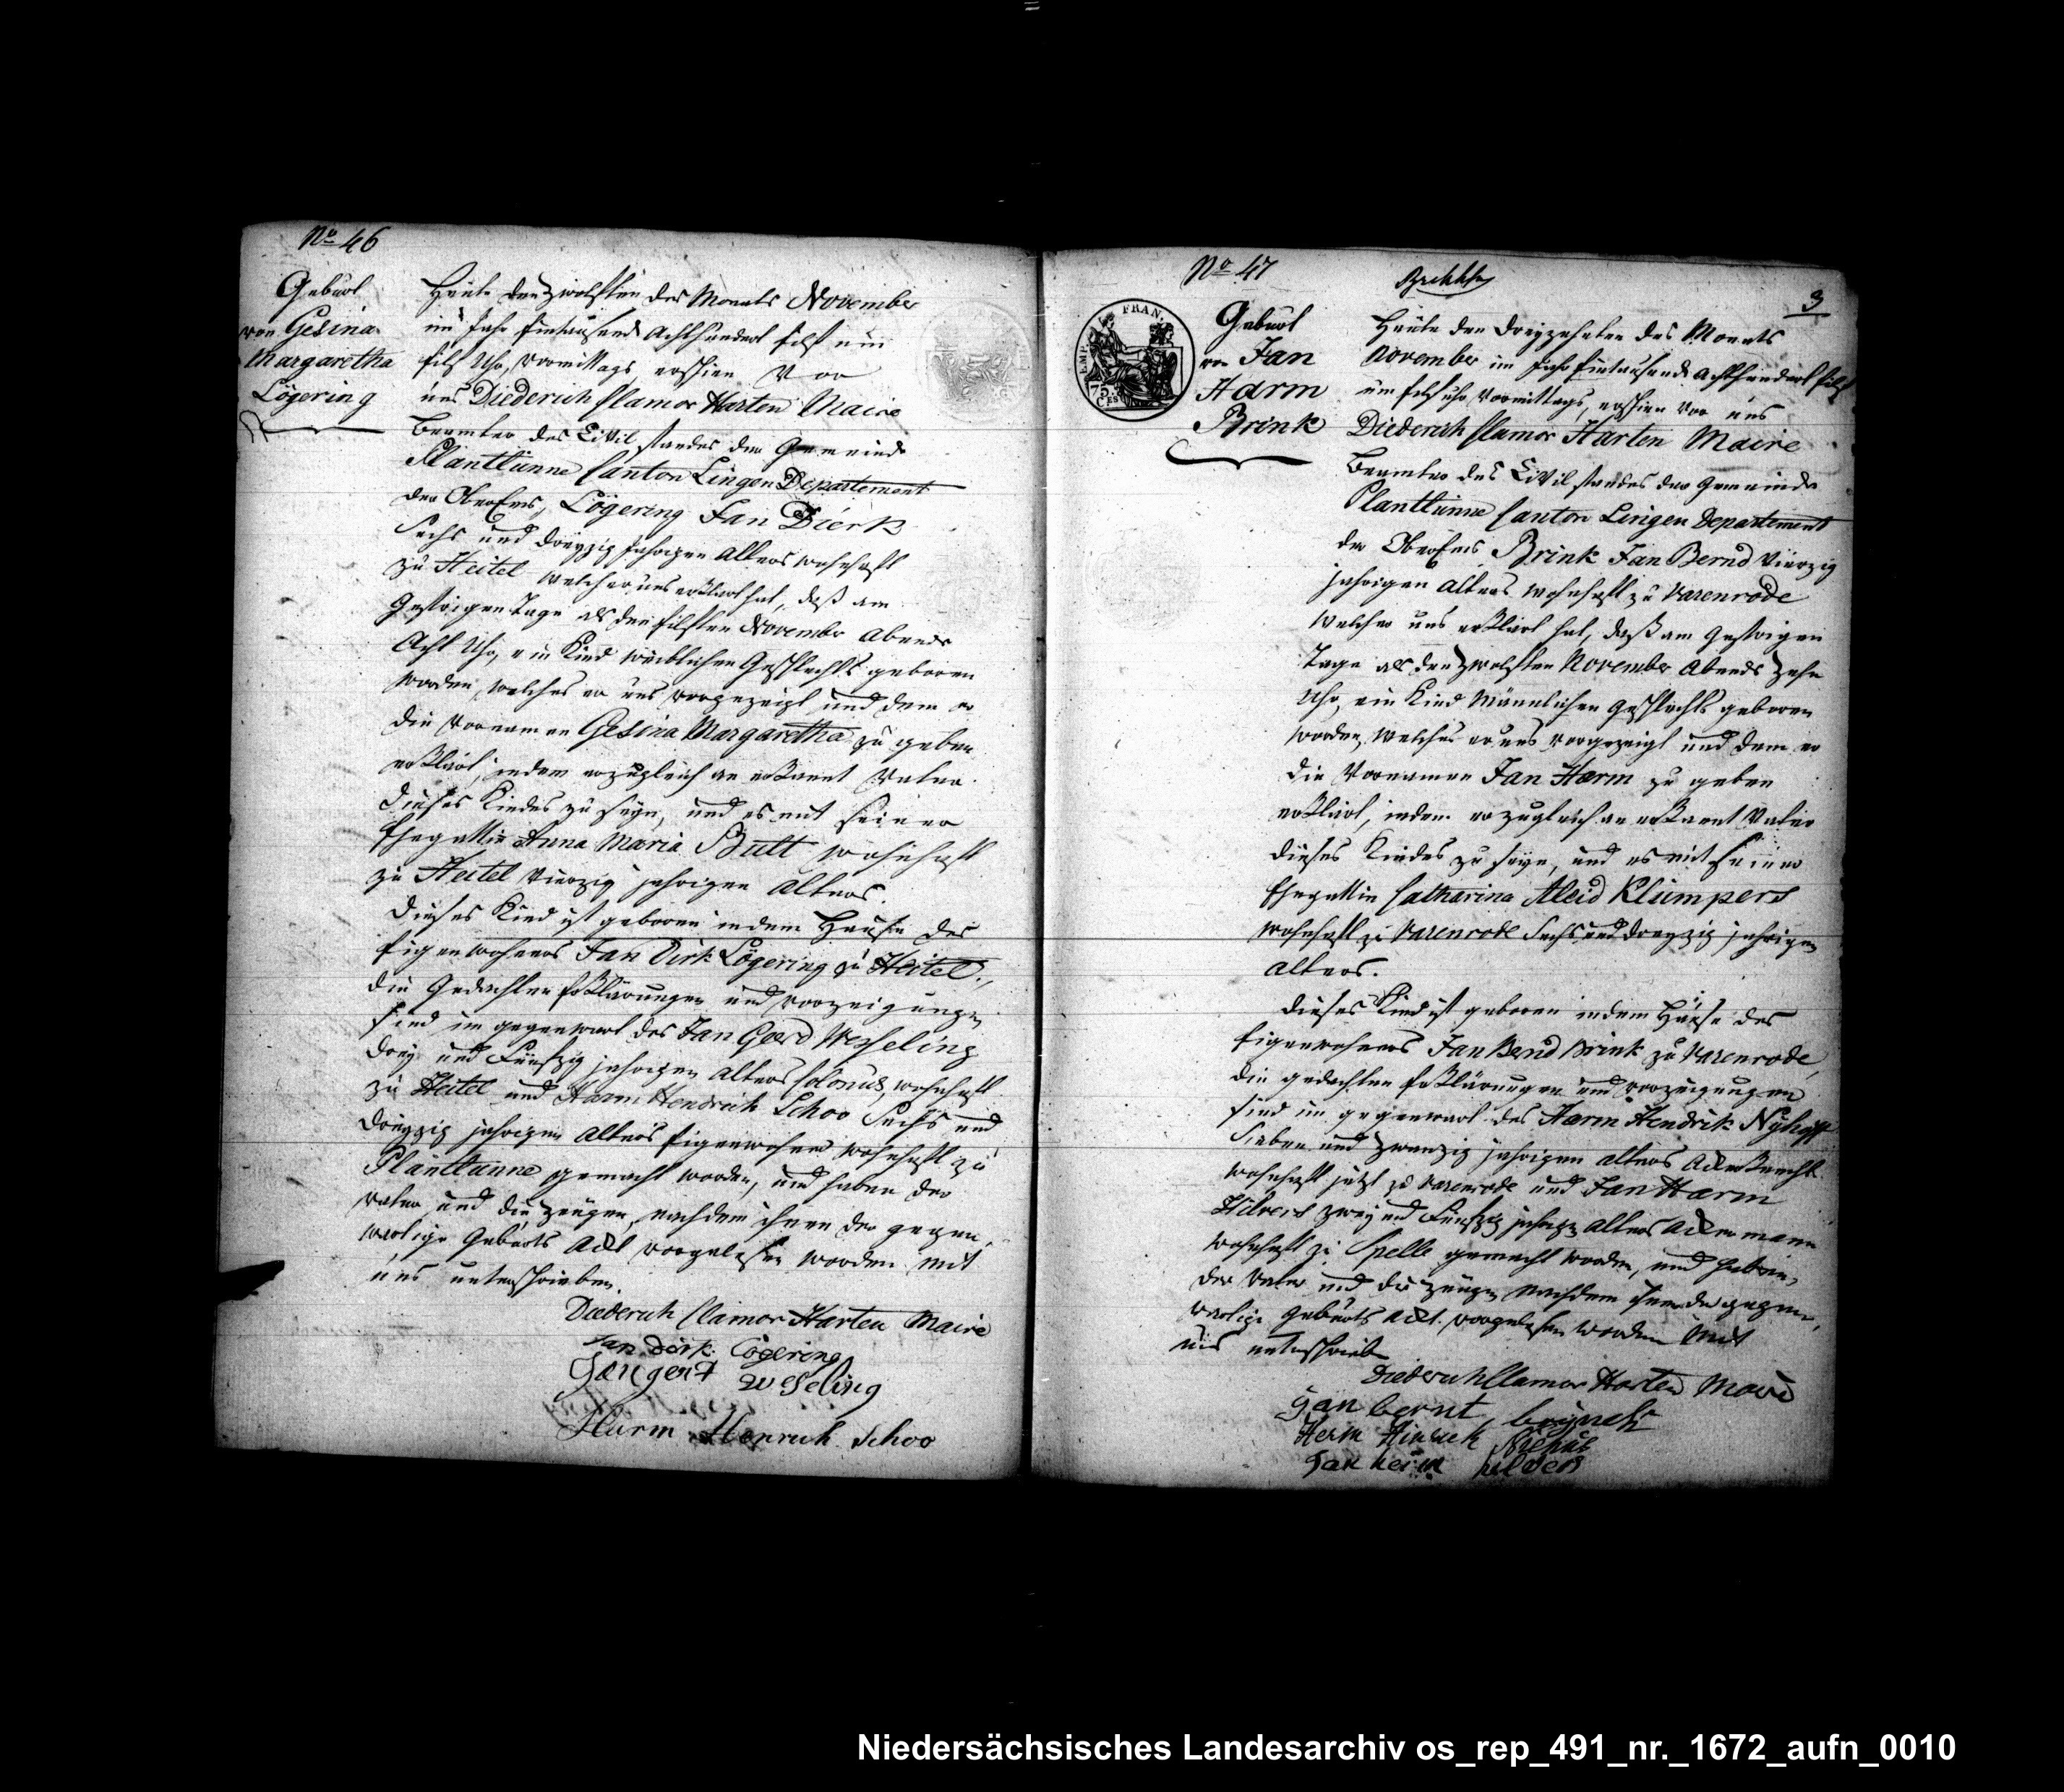 No 46
Geburt
von Gesina
Margaretha
Lögering
Heute den zwölften des Monats November
im Jahr Eintausend Achthundert Eilf um
Eilf Uhr, Vormittags erschien Vor
uns Diederich Clamor Harten Maire
Beamter des Civil standes der Gemeinde
Plantlünne Canton Lingen Departement
der OberEms, Lögering Jan Dierk
Sechs und dreyzig jahrigen Alters wohnhaft
zu Heitel welcher uns erklärt hat, daß am
Gestrigen Tage als den Eilften November Abends
Acht Uhr, ein Kind weiblichen Geschlechts geboren
worden, welches er uns vorgezeigt und dem er
die Vornamen Gesina Margaretha zu geben
erklärt, indem er zugleich anerkannt Vater
dieses Kindes zu seyn, und es mit seiner
Ehegattin Anna Maria Bult wohnhaft
zu Heitel Vierzig jahrigen Alters.
dieses Kind ist geboren in dem Hause des
Eigenwohners Jan Dirk Lögering zu Heitel,
die Gedachten Erklärungen und Vorzeigungen
sind in gegenwart des Jan Gerd Wesseling
drey und Fünfzig jahrigen Alters Colonus, wohnhaft
zu Heitel und Harm Hendrich Schoo Sechs und
dreyzig jahrigen Alters Eigenwohner wohnhaft zu
Plantlünne gemacht worden, und haben der
Vater und die Zeugen, nachdem ihnen der gegen-
wartige Geburts Act vorgelesen worden mit
uns unterschrieben
Diederich Clamor Harten Maire
Jan Dirk Lögering
Jan gert weseling
Harm Henrich Schoo
No 47
3
EMP. FRAN.
75.
CES
Geburt
von Jan
Harm
Brink
Heute den Dreyzehnten des Monats
November im Jahr Eintausend Achthundert Eilf
um Eilf uhr, Vormittags, erschien Vor uns
Diederich Clamor Harten Maire
Beamter des Civil standes der Gemeinde
Plantlünne Canton Lingen Departement
der OberEms Brink Jan Bernd Vierzig
jahrigen Alters wohnhaft zu Varenrode
Welcher uns erklärt hat, daß am Gestrigen
Tage als den Zwölften November Abends Zehn
Uhr, ein Kind Männlichen Geschlechts geboren
worden, welches er uns vorgezeigt und dem er
die Vornamen Jan Harm zu geben
erklärt, indem er zugleich anerkannt Vater
dieses Kindes zu seyn, und es mit seiner
Ehegattin Catharina Aleid Klümpers
wohnhaft zu Varenrode Sechs und dreyzig jahrigen
Alters.
dieses Kind ist geboren in dem Hause des
Eigenwohners Jan Bernd Brink zu Varenrode,
die gedachten Erklärungen und Vorzeigungen
sind in gegenwart des Harm Hendrik
Sieben und zwanzig jahrigen Alters Ackerknecht
wohnhaft jetzt zu Varenrode und Jan Harm
Hilvers zwey und Fünfzig jahrign Alters Ackermann
wohnhaft zu Spelle gemacht worden, und haben,
der Vater und die Zeugen nachdem ihnen der gegen-
wartige Geburts Act. vorgelesen worden mit
uns unterschrieb
Diederich Clamor Harten Maire
Jan bernt
Herm Hinrick
Jan herm hilvers
Niedersächsisches Landesarchiv os_rep_491_nr._1672_aufn_0010